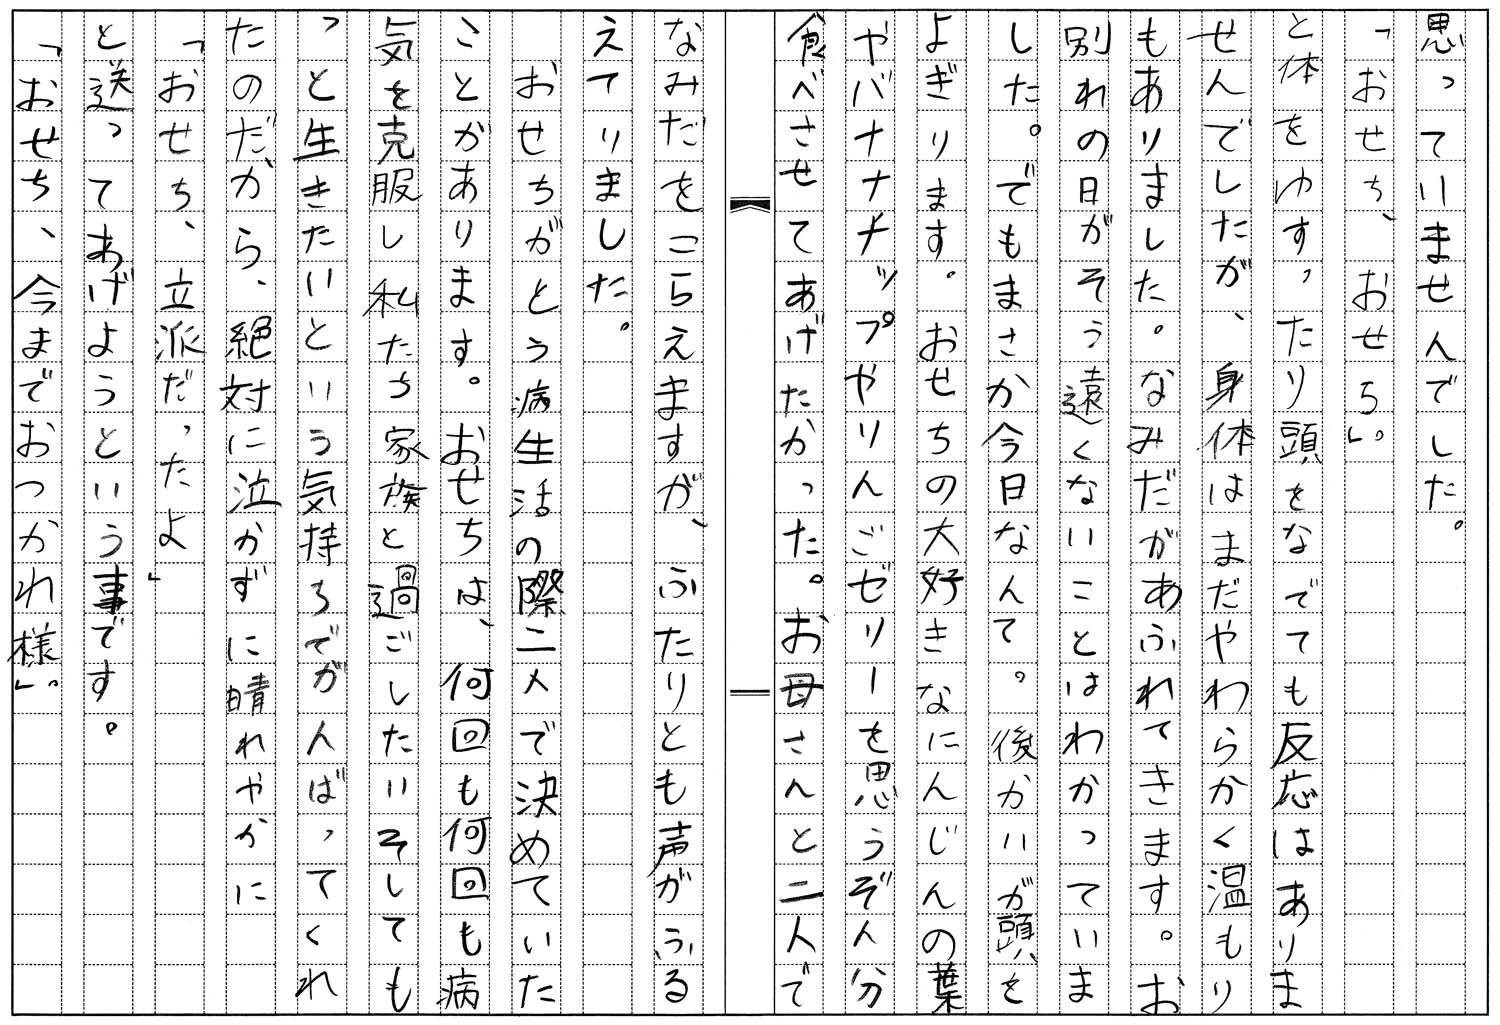 思っていませんでした。
「おせち、　おせち」。
と体をゆすったり頭をなでても反応はありま
せんでしたが、身体はまだやわらかく温もり
もありました。なみだがあふれてきます。お
別れの日がそう遠くないことはわかっていま
した。でもまさか今日なんて。後かいが頭を
よぎります。おせちの大好きなにんじんの葉
やバナナチップやりんごゼリーを思うぞん分
食べさせてあげたかった。お母さんと二人で
なみだをこらえますが、ふたりとも声がふる
えてりました。
おせちがとう病生活の際二人で決めていた
ことがあります。おせちは、何回も何回も病
気を克服し私たち家族と過ごしたいそしても
っと生きたいという気持ちでがんばってくれ
たのだから、絶対に泣かずに晴れやかに
「おせち、立派だったよ」
と送ってあげようという事です。
「おせち、今までおつかれ様」。